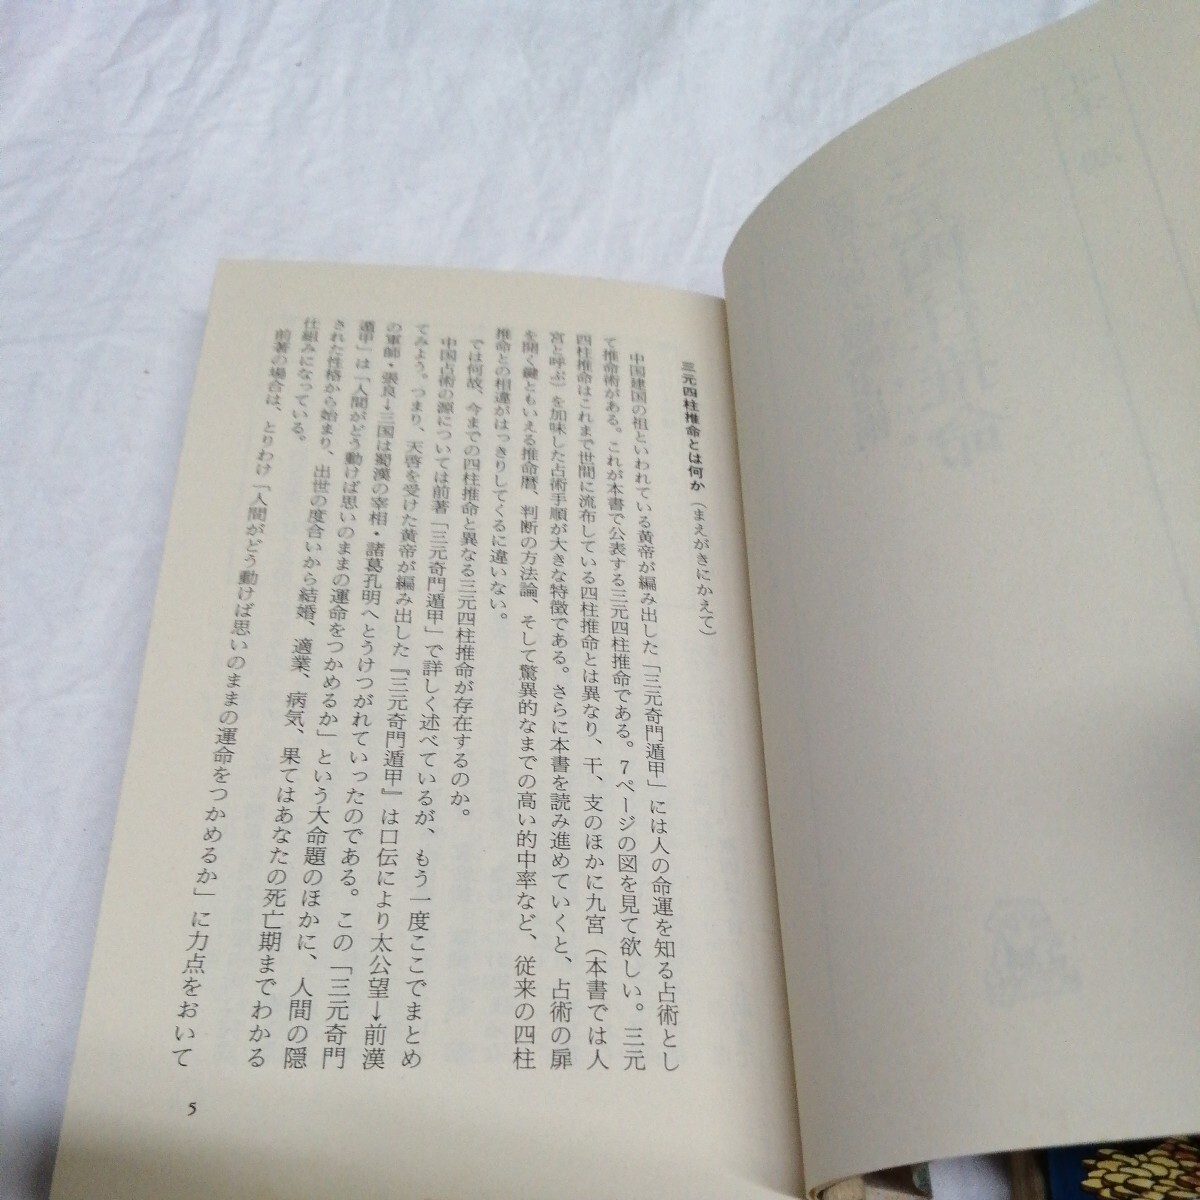 三元四柱推命とは何か（まえがきにかえて）
中国建国の祖といわれている黄帝が編み出した「三元奇門遁甲」には人の命運を知る占術とし
て推命術がある。これが本書で公表する三元四柱推命である。7ページの図を見て欲しい。三元
四柱推命はこれまで世間に流布している四柱推命とは異なり、干、支のほかに九宮（本書では人
宮と呼ぶ）を加味した占術手順が大きな特徴である。さらに本書を読み進めていくと、占術の扉
を開く鍵ともいえる推命暦、判断の方法論、そして驚異的なまでの高い的中率など、従来の四柱
推命との相違がはっきりしてくるに違いない。
では何故、今までの四柱推命と異なる三元四柱推命が存在するのか。
中国占術の源については前著「三元奇門遁甲」で詳しく述べているが、もう一度ここでまとめ
てみよう。つまり、天啓を受けた黄帝が編み出した『三元奇門遁甲』は口伝により太公望→前漢
の軍師・張良→三国は蜀漢の宰相・諸葛孔明へとうけつがれていったのである。この「三元奇門
遁甲」は「人間がどう動けば思いのままの運命をつかめるか」という大命題のほかに、人間の隠
された性格から始まり、出世の度合いから結婚、適業、病気、果てはあなたの死亡期までわかる
仕組みになっている。
前著の場合は、とりわけ「人間がどう動けば思いのままの運命をつかめるか」に力点をおいて
5